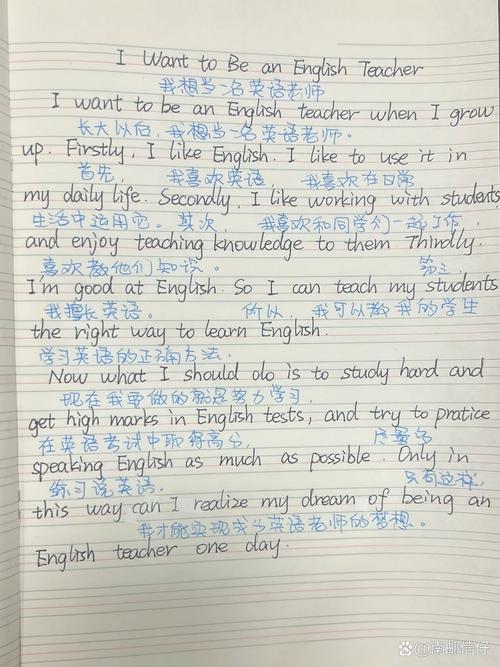 I Want to Be an English Teacher
我想当一名英语老师
I want to be an English teacher when I grow
长大以后,我想当一名英语老师。
up. Firstly, I like English. I like to use it in
首先, 我喜欢英语, 我喜欢在日常
my daily life. Secondly, I like working with students
生活中运用它。其次, 我喜欢和同学们一起工作,
and enjoy teaching knowledge to them. Thindly,
喜欢教他们知识。 第三,
I'm good at English. So I can teach my students
我擅长英语。 所以, 我可以教我的学生
the right way to learn English.
学习英语的正确方法.
Now what I should do is to study hard and
现在我要做的就是努力学习,
get high marks in English tests, and try to pratice
在英语考试中取得高分, 尽量多
speaking English as much as possible. Only in
练习说英语. 只有这样,
this way can I realize my dream of being an
我才能实现成为英语老师的梦想。
English teacher one day.
南邮信仔